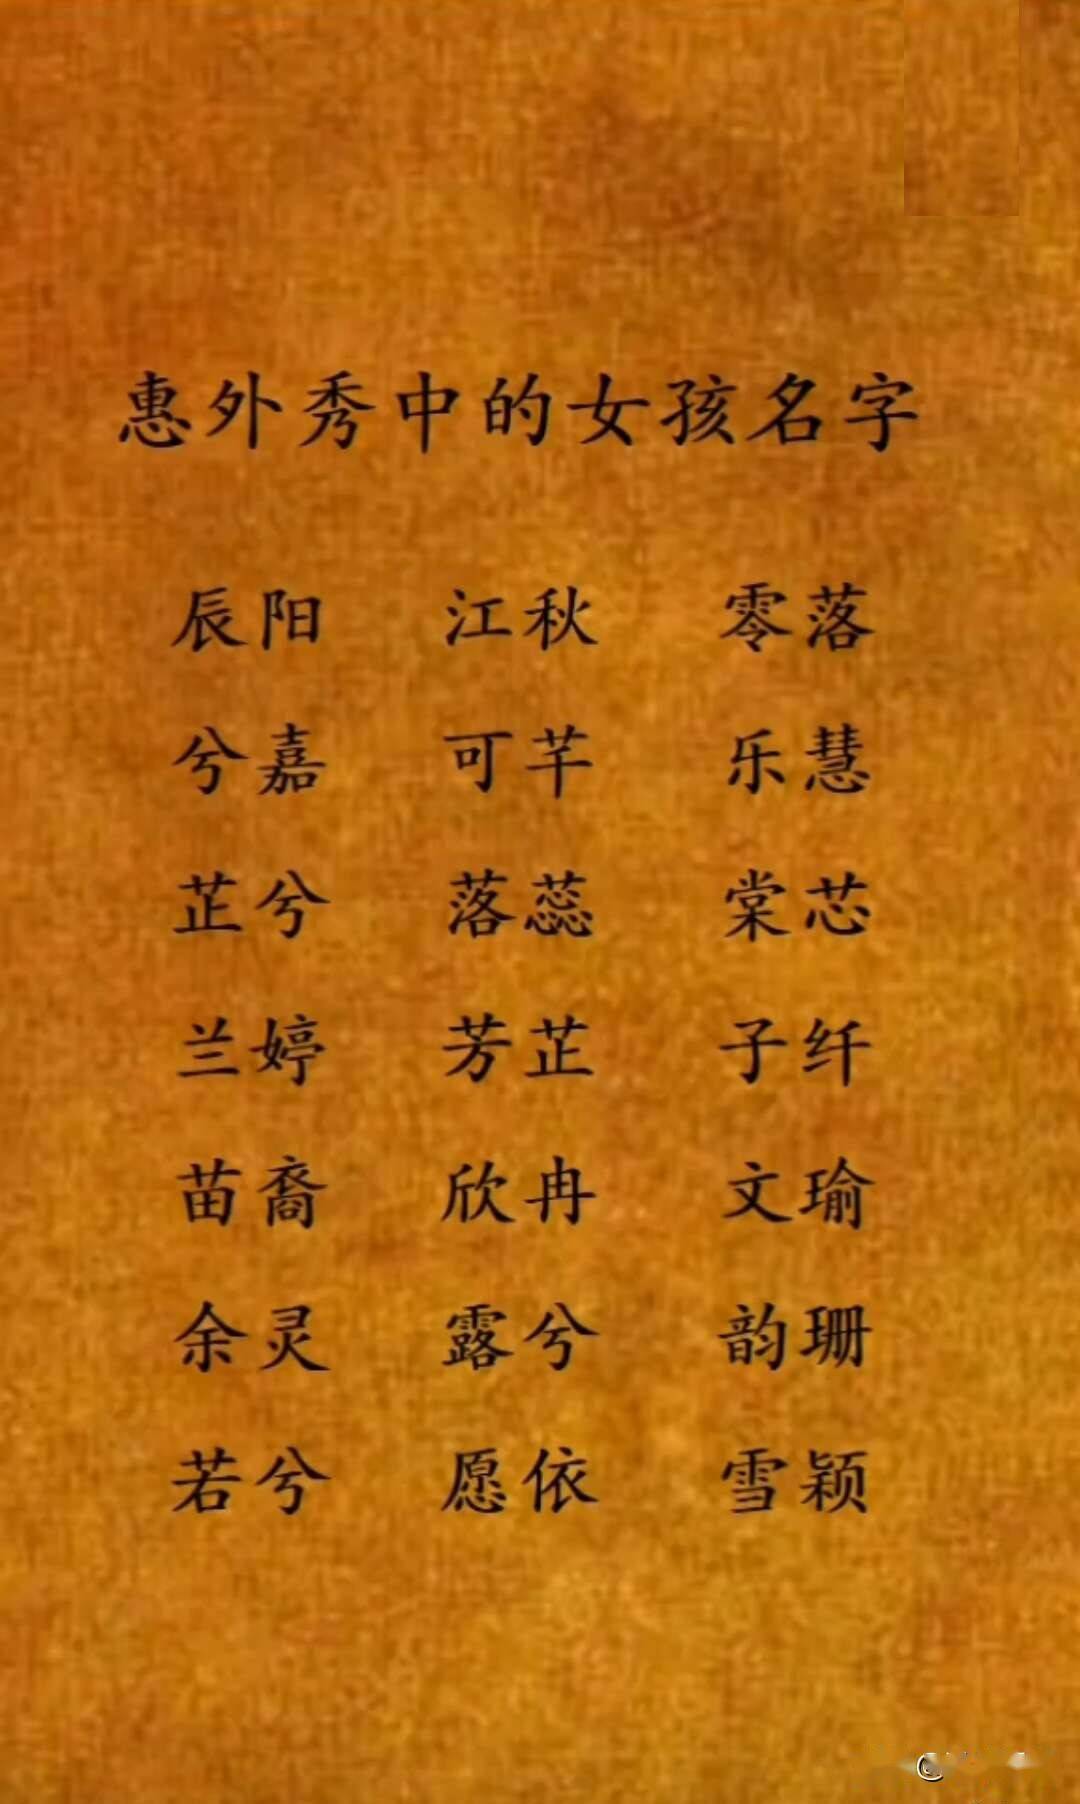 惠外秀中的女孩名字
辰阳 江秋 零落
兮嘉 可芊 乐慧
芷兮 落蕊 棠芯
兰婷 芳芷 子纤
苗裔 欣冉 文瑜
余灵 露兮 韵珊
若兮 愿依 雪颖